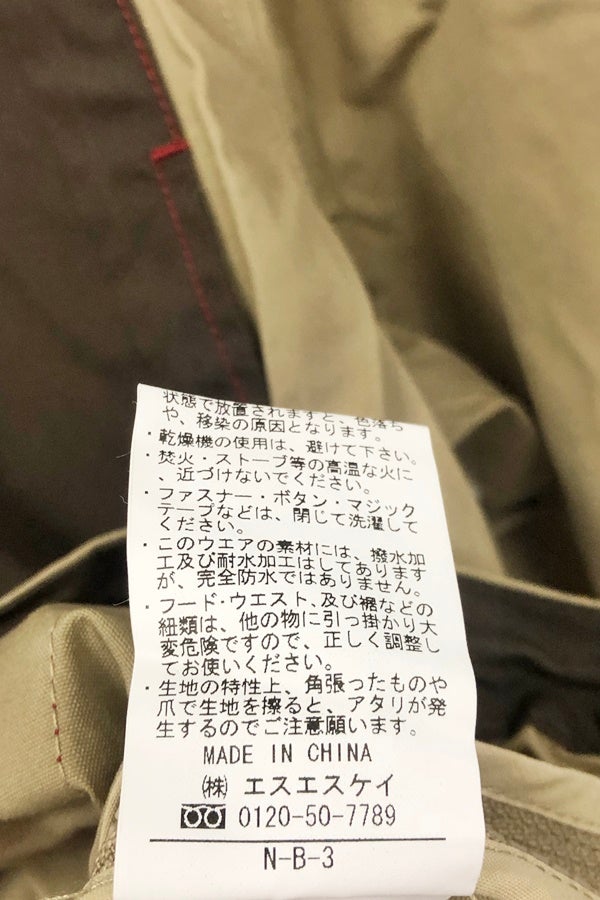 状態で放置されますと、色落ち
や、移染の原因となります。
・乾燥機の使用は、避けて下さい。
・焚火・ストーブ等の高温な火に
、近づけないでください。
・ファスナー・ボタン・マジック
テープなどは、閉じて洗濯して
ください。
・このウエアの素材には、撥水加
工及び耐水加工はしてあります
が、完全防水ではありません。
・フード・ウエスト、及び裾などの
紐類は、他の物に引っ掛かり大
変危険ですので、正しく調整し
てお使いください。
・生地の特性上、角張ったものや
爪で生地を擦ると、アタリが発
生するのでご注意願います。
MADE IN CHINA
㈱ エスエスケイ
0120-50-7789
N-B-3